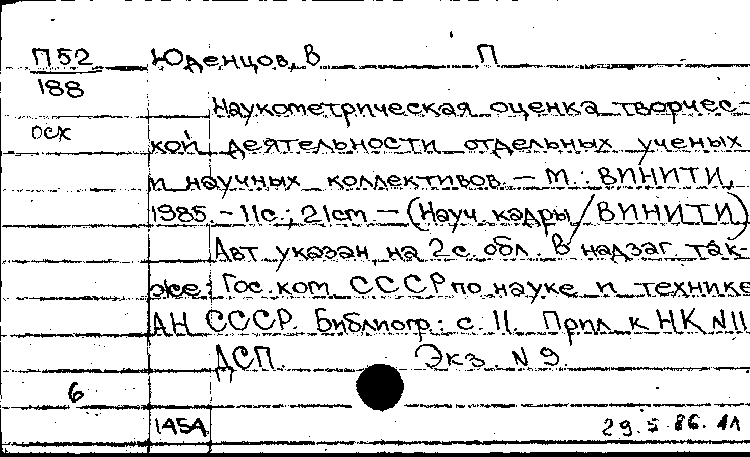 П52 Юденцов, В П
188
Наукометрическая оценка творчес-
осх
кой деятельности отдельных ученых
и научных коллективов. – М.: ВИНИТИ,
1985. – 11с.; 21см – (Науч. кадры / ВИНИТИ)
Авт указан на 2 с. обл. В надзаг так-
же: Гос. ком. СССР по науке и технике
АН СССР. Библиогр: с. 11. Прил к НК N11
ДСП. Экз. N 9.
6
1454
29.5.86.